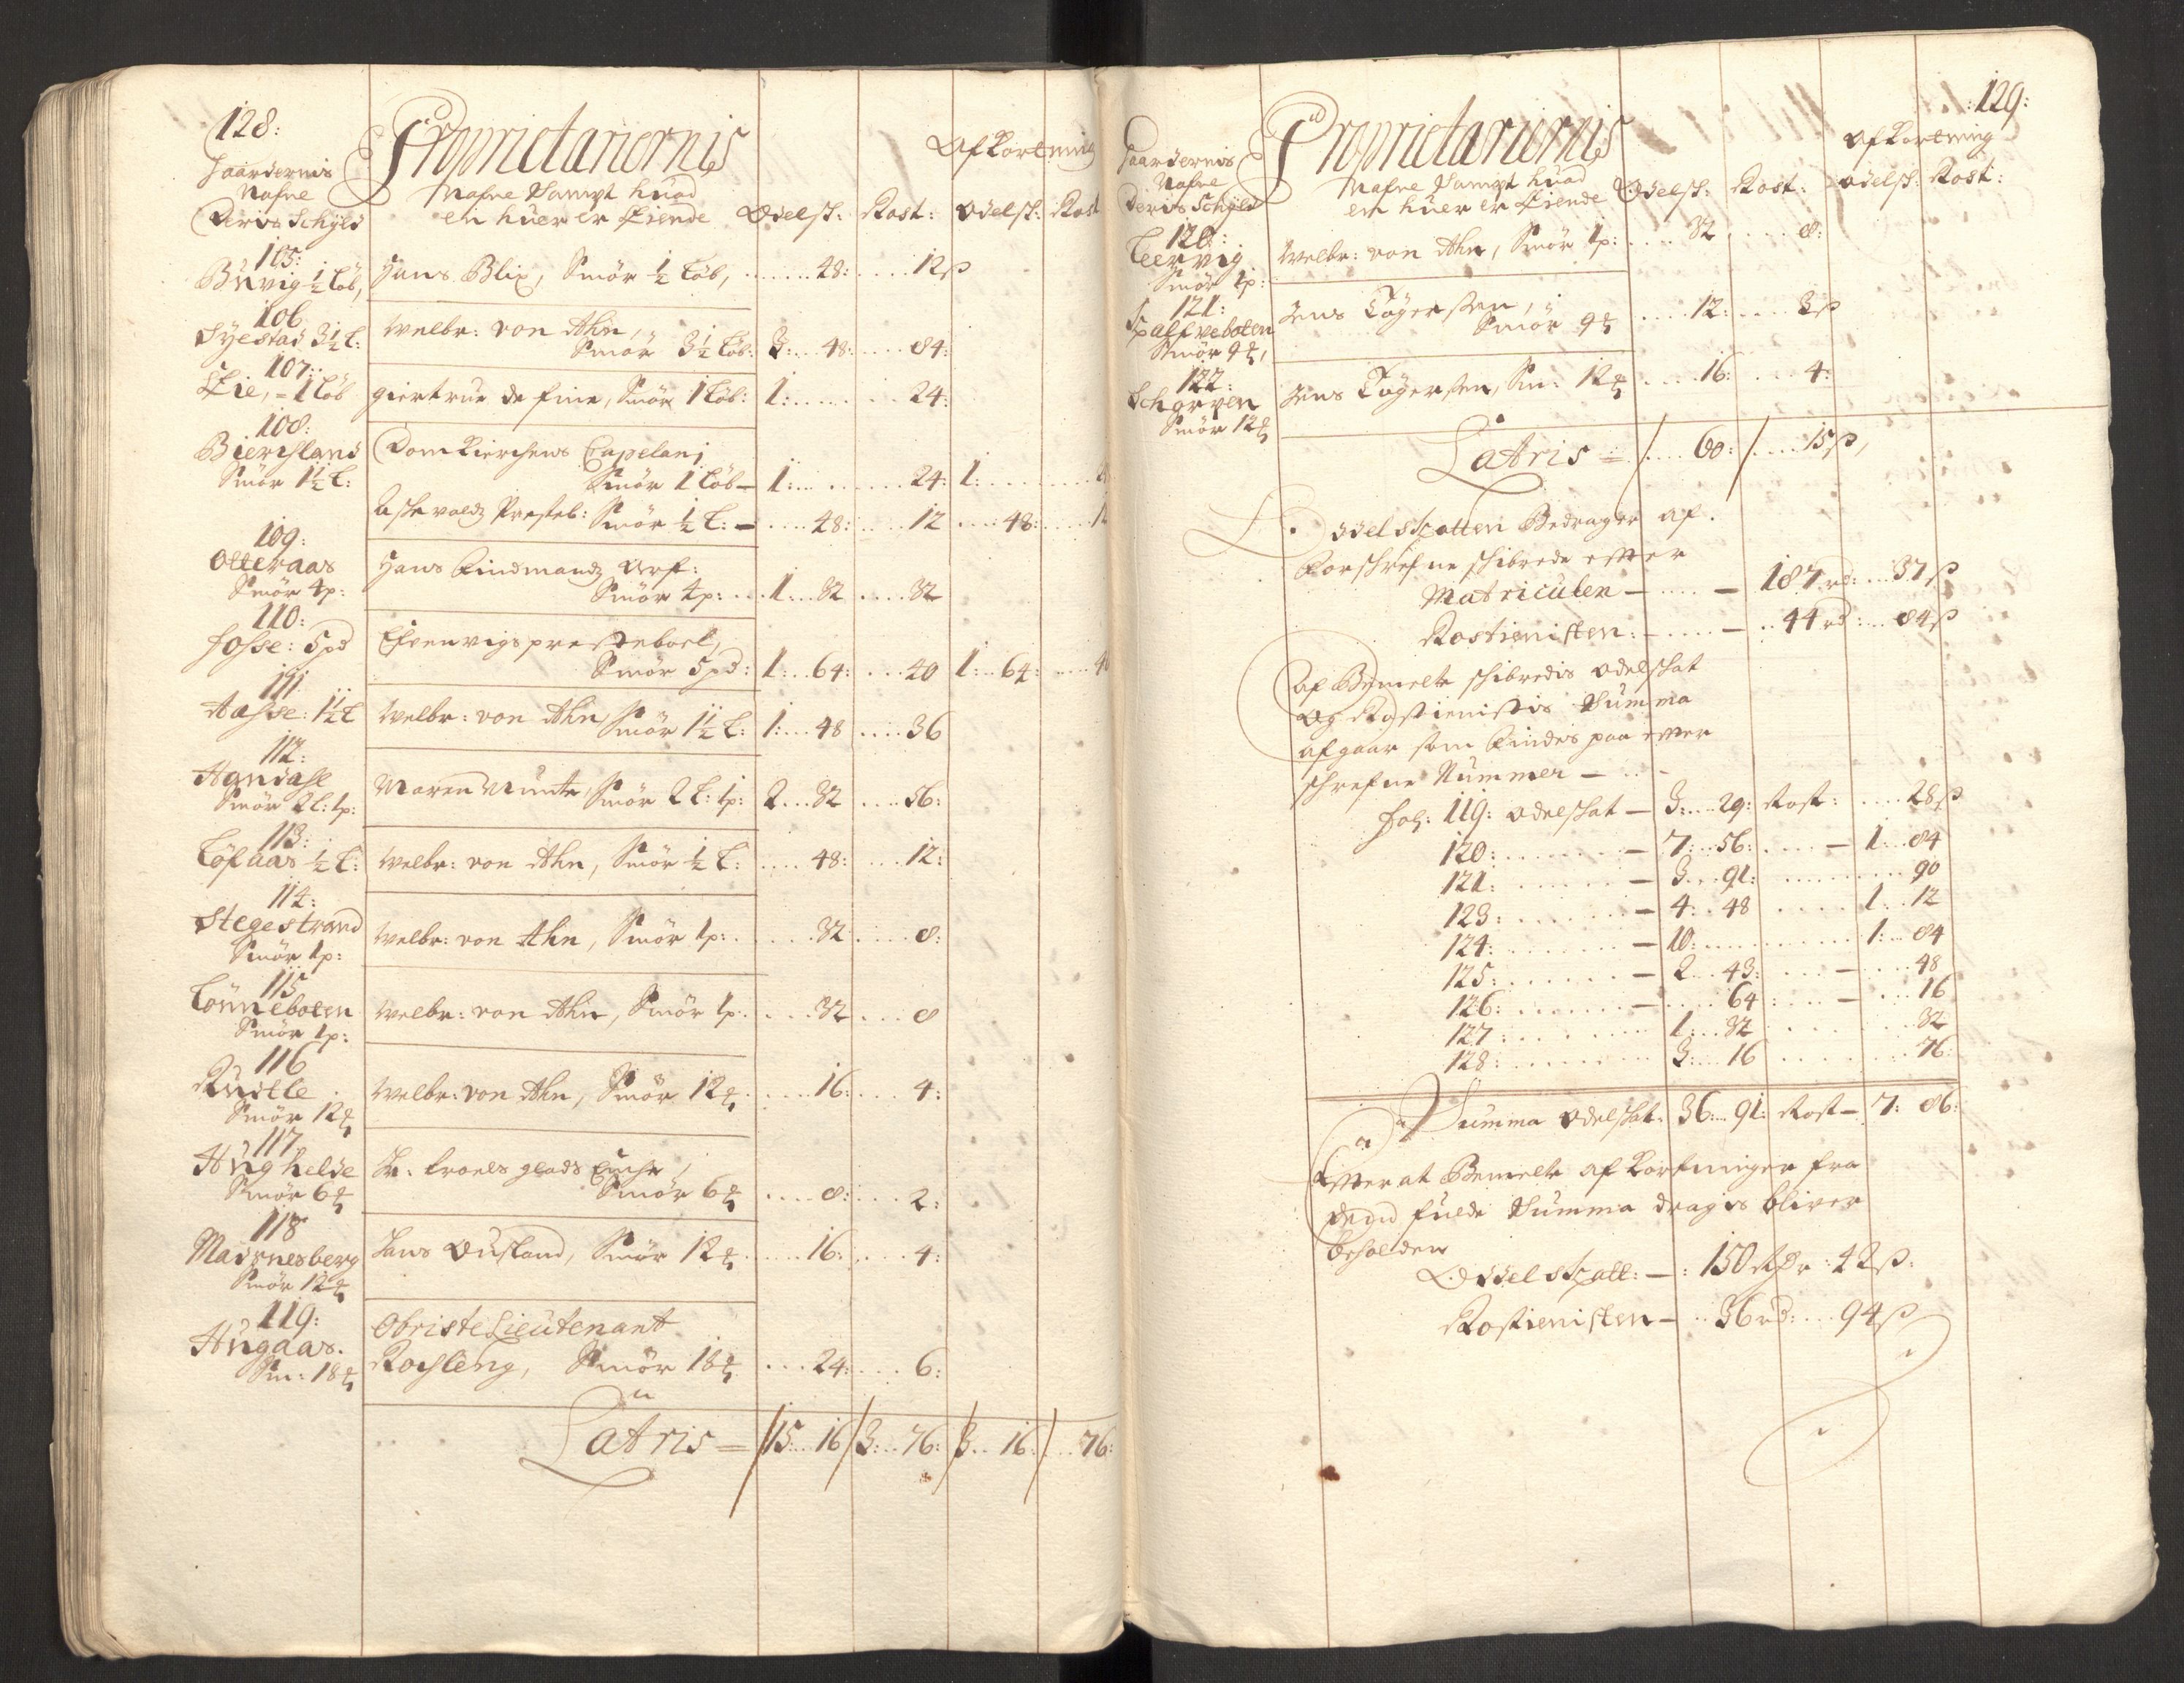 128:
Gaardernis Nafne Deris Schyld
Proprietariernis Nafne Sampt huad en huer er Eiende
Odelsk: Rost:
Afkortning Odelsk: Rost
105:
Buvig ½ Løb, Hans Blix, Smør ½ Løb, 48: 12 ß
106
Syestad 3½ L: Welbr: von Ahn, Smør 3½ Løb: 3: 48: 84:
107:
Eie, 1 Løb giertrue de fine, Smør 1 Løb: 1: 24:
108:
Bierchland Smør 1½ L: Domkierchens Capelani Smør 1 Løb 1: 24: 1:
Aschevolds Presteb: Smør ½ L: 48: 12 48: 12
109:
Otteraas Smør 4p: Hans Lindmands Arf: Smør 4p: 1: 32 32
110:
Fosse: 5pd Efvenvigs presteboel, Smør 5pd: 1: 64: 40 1: 64: 40
111
Aasse: 1½ L Welbr: von Ahn Smør 1½ L: 1: 48 36
112:
Handahl Smør 2L: 1p: Maren Munte Smør 2L: 1p: 2 32 56:
113:
Løfaas ½ L: Welbr: von Ahn, Smør ½ L: 48: 12:
114:
Stegestrand Smør 1p: Welbr: von Ahn, Smør 1p: 32 8:
115
Lønneboten Smør 1p: Welbr: von Ahn, Smør 1p. 32 8
116
Rustle Smør 12 Welbr: von Ahn, Smør 12 16: 4:
117
Hughelde Smør 6 Sr: troels glads Enche, Smør 6 8: 2:
118
Madsnesberg Smør 12 Hans Ousland, Smør 12 16: 4:
119:
Hugaas. Sm: 18 Obriste Lieutenant Rochleng, Smør 18 24: 6:
Latris 15 16 3: 76: 3 16: 76:
129:
Gaardernis Nafne Deris Schyld
Proprietariernis Nafne Sampt huad en huer er Eiende
Odelsk: Rost:
Afkortning Odelsk: Rost:
120:
Leervig Smør 1p: Welbr: von Ahn, Smør 1p: 32 8:
121:
Kalfveboten Smør 9, Jens Tøgersen, Smør 9 12: 3 ß
122:
Schorven Smør 12 Jens Tøgersen, Sm: 12 16: 4:
Latris 60: 15 ß,
Odelskatten Bedrager af
Forschrefne schibrede efter
Matriculen 187 rd: 37 ß
Rostienisten: 44 rd: 84 ß
Af Bemelte schibredis odelskat
og Rostienistis Summa
afgaar som findes paa efter
schrefne Nummer
fol: 119: odelskat 3: 29: Rost: 28 ß
120: 7: 56: 1: 84
121: 3: 91: 90
123: 4: 48 1: 12
124: 10: 1: 84
125: 2: 43: 48
126: 64 16
127: 1: 32 32
128: 3: 16 76:
Summa Odelskat: 36: 91: Rost 7: 86:
Efterat Bemelte afkortninger fra
dend fulde Summa dragis bliver
beholden
Odelskatt: 150 Rdr: 42 ß:
Rostienisten 36 rd: 94 ß